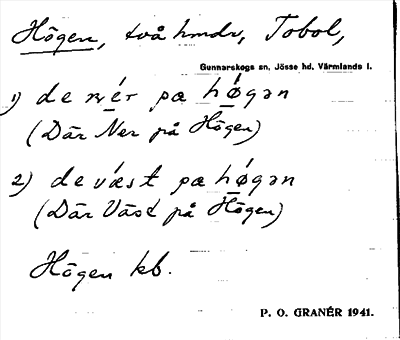 Högen, två hmdr, Tobol,
Gunnarskogs sn, Jösse hd, Värmlands l.
1) de nér pœ hǿgən
(Där Ner på Högen)
2) de vœ́st pœ hǿgən
(Där Väst på Högen)
Högen kb.
P. O. GRANÉR 1941.